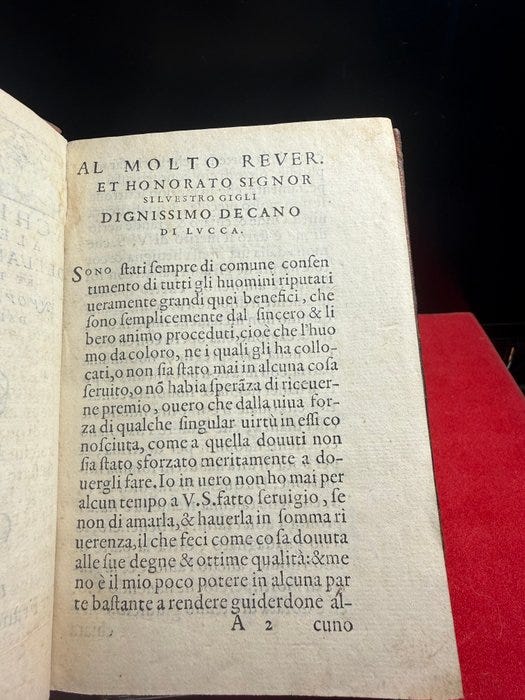 AL MOLTO REVER.
ET HONORATO SIGNOR
SILVESTRO GIGLI
DIGNISSIMO DECANO
DI LVCCA.
SONO ſtati ſempre di comune conſen
timento di tutti gli huomini riputati
ueramente grandi quei benefici, che
ſono ſemplicemente dal ſincero & li
bero animo proceduti, cioè che l'huo
mo da coloro, ne i quali gli ha collo-
cati, o non ſia ſtato mai in alcuna coſa
ſeruito, o nõ habia ſperãza di riceuer-
ne premio, ouero che dalla uiua for-
za di qualche ſingular uirtù in eſſi co
noſciuta, come a quella douuti non
ſia ſtato sforzato meritamente a do-
uergli fare. Io in uero non ho mai per
alcun tempo a V.S. fatto ſeruigio, ſe
non di amarla, & hauerla in ſomma ri
uerenza, il che feci come coſa douuta
alle ſue degne & ottime qualità: & me
no è il mio poco potere in alcuna par
te baſtante a rendere guiderdone al-
A 2 cuno